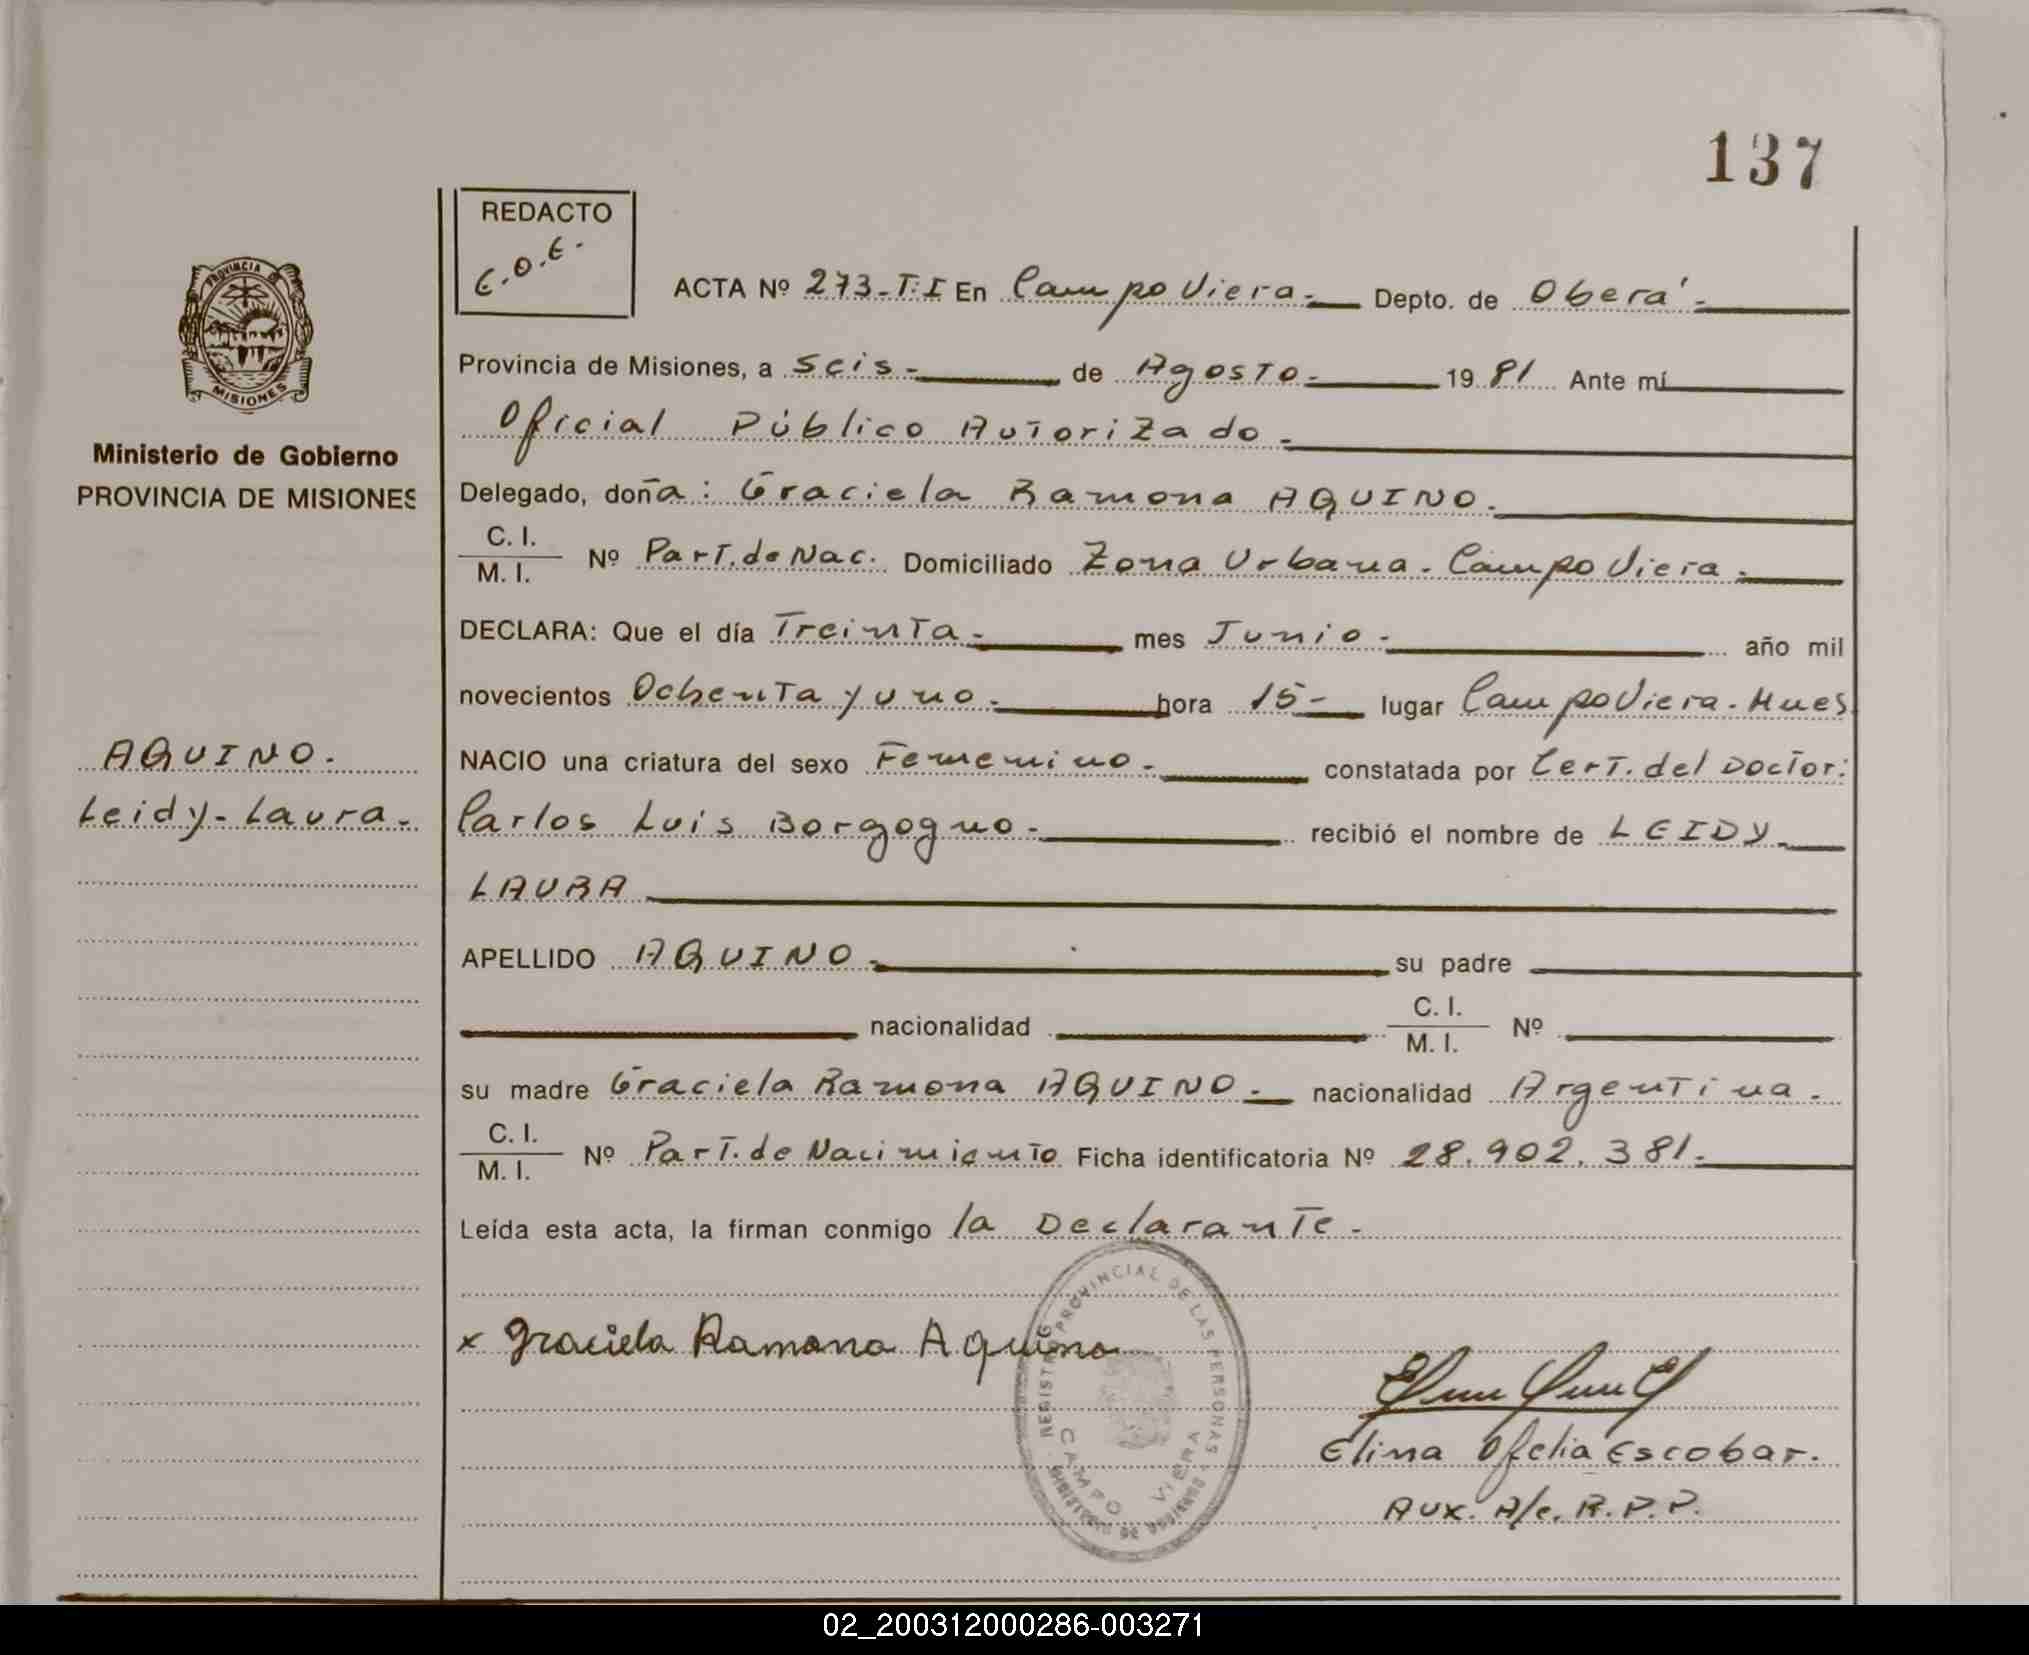 137
REDACTO
E.O.E.
ACTA Nº 273-T:I En Campo Viera.- Depto. de Oberá.-
Provincia de Misiones, a seis.- de Agosto.- 1981 Ante mí
Oficial Público Autorizado.-
Delegado, doña: Graciela Ramona AQUINO.-
C. I.
M. I. Nº Part. de Nac. Domiciliado Zona Urbana. Campo Viera.-
DECLARA: Que el día Treinta.- mes Junio.- año mil
novecientos Ochenta y uno.- hora 15- lugar Campo Viera. Mnes
NACIO una criatura del sexo Femenino.- constatada por Cert. del Doctor:
Carlos Luis Borgogno.- recibió el nombre de LEIDY.-
LAURA
APELLIDO AQUINO.- su padre
nacionalidad C. I.
M. I. Nº
su madre Graciela Ramona AQUINO.- nacionalidad Argentina.
C. I.
M. I. Nº Part. de Nacimiento Ficha identificatoria Nº 28.902.381.-
Leída esta acta, la firman conmigo la Declarante.-
x Graciela Ramona Aquino
Elina Ofelia Escobar.
Aux. A/c. R.P.P.
REGISTRO PROVINCIAL DE LAS PERSONAS
CAMPO VIERA
MINISTERIO DE GOBIERNO
PROVINCIA DE
MISIONES
Ministerio de Gobierno
PROVINCIA DE MISIONES
AQUINO.
Leidy-Laura.-
02_200312000286-003271